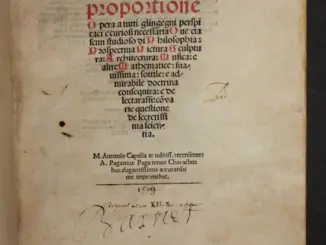 proportione
Opera a tutti glingegni perspi
caci e curiosi necessaria Oue cia
scun studioso di Philosophia:
Prospectiua Pictura Sculptu
ra: Architectura: Musica: e
altre Mathematice: sua
uissima: sottile: e ad
mirabile doctrina
consequira: e de
lectarassi: cōvarie
questione
de secretissi
ma scien
tia.
M. Antonio Capella eruditiss. recensente:
A. Paganius Paganinus Characteri
bus elegantissimis accuratissi
me imprimebat.
1509